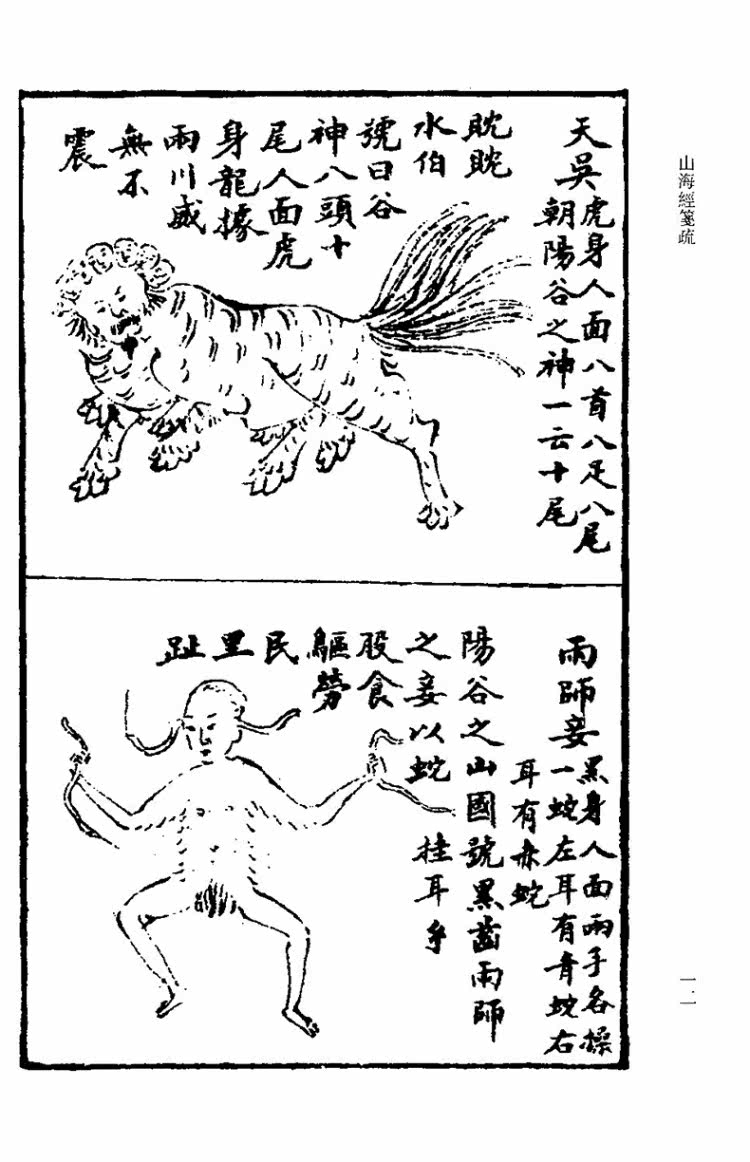 山海經箋疏
天吳
虎身人面八首八足八尾
朝陽谷之神一云十尾
眈眈
水伯
號曰谷
神八頭十
尾人面虎
身龍據
兩川威
無不
震
雨師妾
黑身人面兩手各操
一蛇左耳有青蛇右
耳有赤蛇
陽谷之山國號黑齒雨師
之妾以蛇
挂耳乡
股食
軀勞
民黑
趾
一二